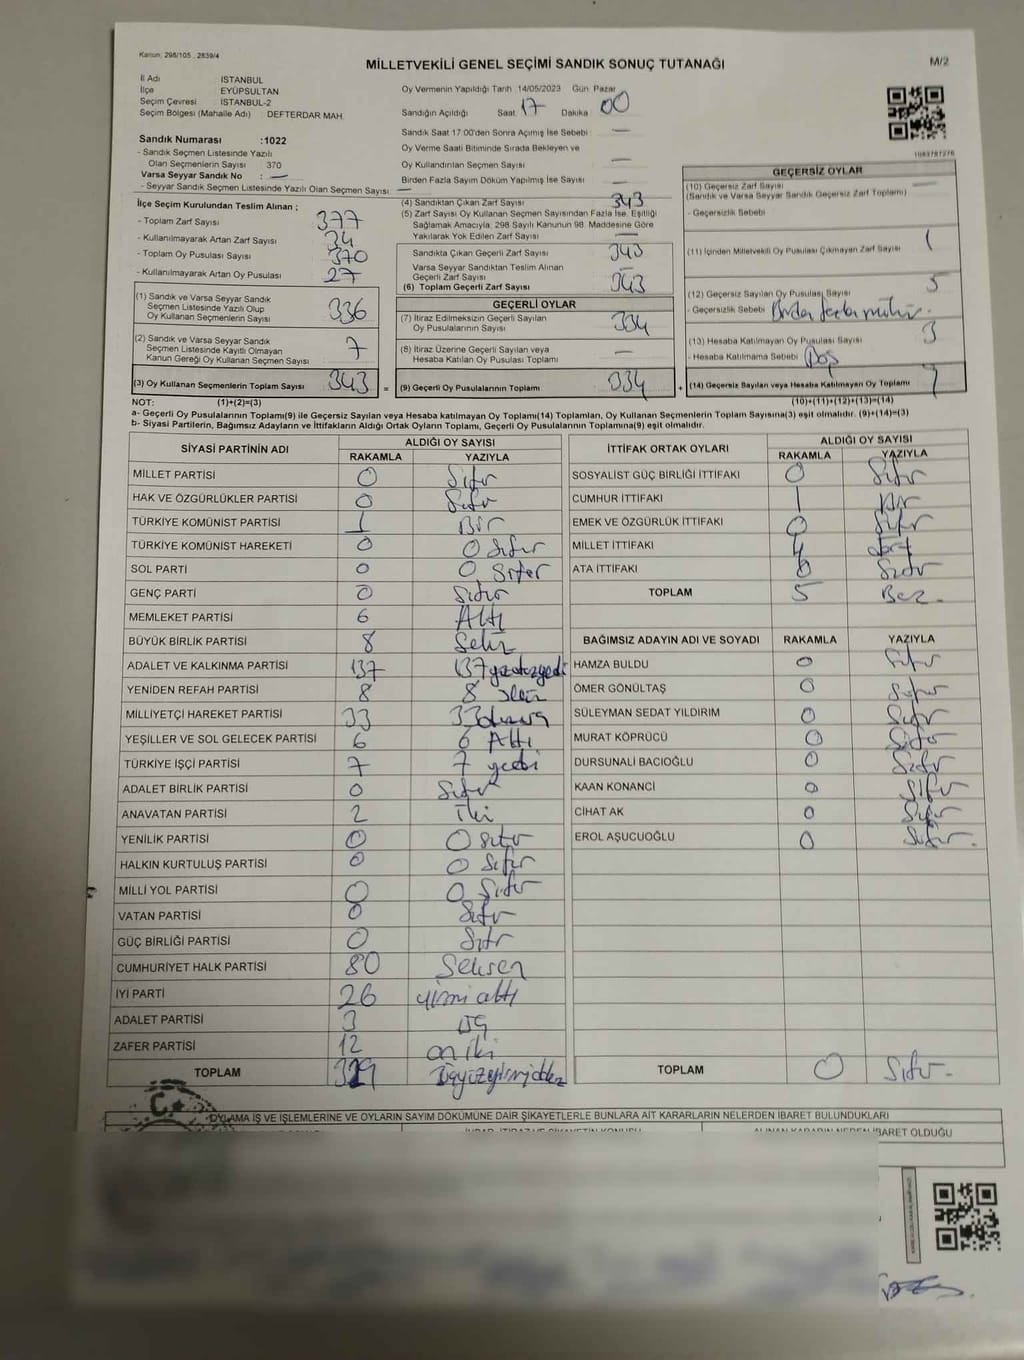 Kanun: 298/105 , 2839/4
MİLLETVEKİLİ GENEL SEÇİMİ SANDIK SONUÇ TUTANAĞI
M/2
İl Adı İSTANBUL
İlçe EYÜPSULTAN
Seçim Çevresi İSTANBUL-2
Seçim Bölgesi (Mahalle Adı) DEFTERDAR MAH.
Oy Vermenin Yapıldığı Tarih 14/05/2023 Gün Pazar
Sandığın Açıldığı Saat 17 Dakika 00
Sandık Saat 17:00'den Sonra Açılmış İse Sebebi —
Oy Verme Saati Bitiminde Sırada Bekleyen ve
Oy Kullandırılan Seçmen Sayısı —
Birden Fazla Sayım Döküm Yapılmış İse Sayısı —
Sandık Numarası :1022
- Sandık Seçmen Listesinde Yazılı
Olan Seçmenlerin Sayısı 370
Varsa Seyyar Sandık No : —
- Seyyar Seçmen Listesinde Yazılı Olan Seçmen Sayısı —
İlçe Seçim Kurulundan Teslim Alınan :
- Toplam Zarf Sayısı 377
- Kullanılmayarak Artan Zarf Sayısı 34
- Toplam Oy Pusulası Sayısı 370
- Kullanılmayarak Artan Oy Pusulası 27
(1) Sandık ve Varsa Seyyar Sandık
Seçmen Listesinde Yazılı Olup
Oy Kullanan Seçmenlerin Sayısı 336
(2) Sandık ve Varsa Seyyar Sandık
Seçmen Listesinde Kayıtlı Olmayan
Kanun Gereği Oy Kullanan Seçmen Sayısı 7
(3) Oy Kullanan Seçmenlerin Toplam Sayısı 343 =
(4) Sandıktan Çıkan Zarf Sayısı 343
(5) Zarf Sayısı Oy Kullanan Seçmen Sayısından Fazla İse, Eşitliği
Sağlamak Amacıyla, 298 Sayılı Kanunun 98. Maddesine Göre
Yakılarak Yok Edilen Zarf Sayısı —
Sandıkta Çıkan Geçerli Zarf Sayısı 343
Varsa Seyyar Sandıktan Teslim Alınan
Geçerli Zarf Sayısı —
(6) Toplam Geçerli Zarf Sayısı 343
GEÇERLİ OYLAR
(7) İtiraz Edilmeksizin Geçerli Sayılan
Oy Pusulalarının Sayısı 334
(8) İtiraz Üzerine Geçerli Sayılan veya
Hesaba Katılan Oy Pusulası Toplamı —
(9) Geçerli Oy Pusulalarının Toplamı 334 +
GEÇERSİZ OYLAR
(10) Geçersiz Zarf Sayısı —
(Sandık ve Varsa Seyyar Sandık Geçersiz Zarf Toplamı)
- Geçersizlik Sebebi
(11) İçinden Milletvekili Oy Pusulası Çıkmayan Zarf Sayısı 1
(12) Geçersiz Sayılan Oy Pusulası Sayısı 5
- Geçersizlik Sebebi Birden fazla mühür.
(13) Hesaba Katılmayan Oy Pusulası Sayısı 3
- Hesaba Katılmama Sebebi Boş
(14) Geçersiz Sayılan veya Hesaba Katılmayan Oy Toplamı 9
NOT: (1)+(2)=(3)
(10)+(11)+(12)+(13)=(14)
a- Geçerli Oy Pusulalarının Toplamı(9) ile Geçersiz Sayılan veya Hesaba katılmayan Oy Toplamı(14) Toplamları, Oy Kullanan Seçmenlerin Toplam Sayısına(3) eşit olmalıdır. (9)+(14)=(3)
b- Siyasi Partilerin, Bağımsız Adayların ve İttifakların Aldığı Ortak Oyların Toplamı, Geçerli Oy Pusulalarının Toplamına(9) eşit olmalıdır.
SİYASİ PARTİNİN ADI ALDIĞI OY SAYISI
RAKAMLA YAZIYLA
MİLLET PARTİSİ 0 Sıfır
HAK VE ÖZGÜRLÜKLER PARTİSİ 0 Sıfır
TÜRKİYE KOMÜNİST PARTİSİ 1 Bir
TÜRKİYE KOMÜNİST HAREKETİ 0 0 Sıfır
SOL PARTİ 0 0 Sıfır
GENÇ PARTİ 0 Sıfır
MEMLEKET PARTİSİ 6 Altı
BÜYÜK BİRLİK PARTİSİ 8 Sekiz
ADALET VE KALKINMA PARTİSİ 137 137
YENİDEN REFAH PARTİSİ 8 8
MİLLİYETÇİ HAREKET PARTİSİ 33 33
YEŞİLLER VE SOL GELECEK PARTİSİ 6 6 Altı
TÜRKİYE İŞÇİ PARTİSİ 7 7 yedi
ADALET BİRLİK PARTİSİ 0 Sıfır
ANAVATAN PARTİSİ 2 İki
YENİLİK PARTİSİ 0 0 Sıfır
HALKIN KURTULUŞ PARTİSİ 0 0 Sıfır
MİLLİ YOL PARTİSİ 0 0 Sıfır
VATAN PARTİSİ 0 Sıfır
GÜÇ BİRLİĞİ PARTİSİ 0 Sıfır
CUMHURİYET HALK PARTİSİ 80 Seksen
İYİ PARTİ 26 yirmi altı
ADALET PARTİSİ 3 üç
ZAFER PARTİSİ 12 on iki
TOPLAM 329
İTTİFAK ORTAK OYLARI ALDIĞI OY SAYISI
RAKAMLA YAZIYLA
SOSYALİST GÜÇ BİRLİĞİ İTTİFAKI 0 Sıfır
CUMHUR İTTİFAKI 1 Bir
EMEK VE ÖZGÜRLÜK İTTİFAKI 0 Sıfır
MİLLET İTTİFAKI 4 dört
ATA İTTİFAKI 0 Sıfır
TOPLAM 5 Beş.
BAĞIMSIZ ADAYIN ADI VE SOYADI RAKAMLA YAZIYLA
HAMZA BULDU 0 Sıfır
ÖMER GÖNÜLTAŞ 0 Sıfır
SÜLEYMAN SEDAT YILDIRIM 0 Sıfır
MURAT KÖPRÜCÜ 0 Sıfır
DURSUNALİ BACIOĞLU 0 Sıfır
KAAN KONANCİ 0 Sıfır
CİHAT AK 0 Sıfır
EROL AŞUCUOĞLU 0 Sıfır.
TOPLAM 0 Sıfır.
OYLAMA İŞ VE İŞLEMLERİNE VE OYLARIN SAYIM DÖKÜMÜNE DAİR ŞİKAYETLERLE BUNLARA AİT KARARLARIN NELERDEN İBARET BULUNDUKLARI